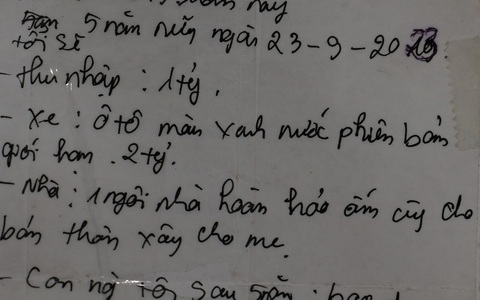 năm nay
5 năm nữa ngày 23-9-20
tôi sẽ
- thu nhập : 1 tỷ.
- Xe : Ô tô màu xanh nước phiên bản
giới hạn . 2 tỷ.
- Nhà : 1 ngôi nhà hoàn hảo ấm cúng cho
bản thân xây cho mẹ.
- Con ng tôi sau 5 năm :